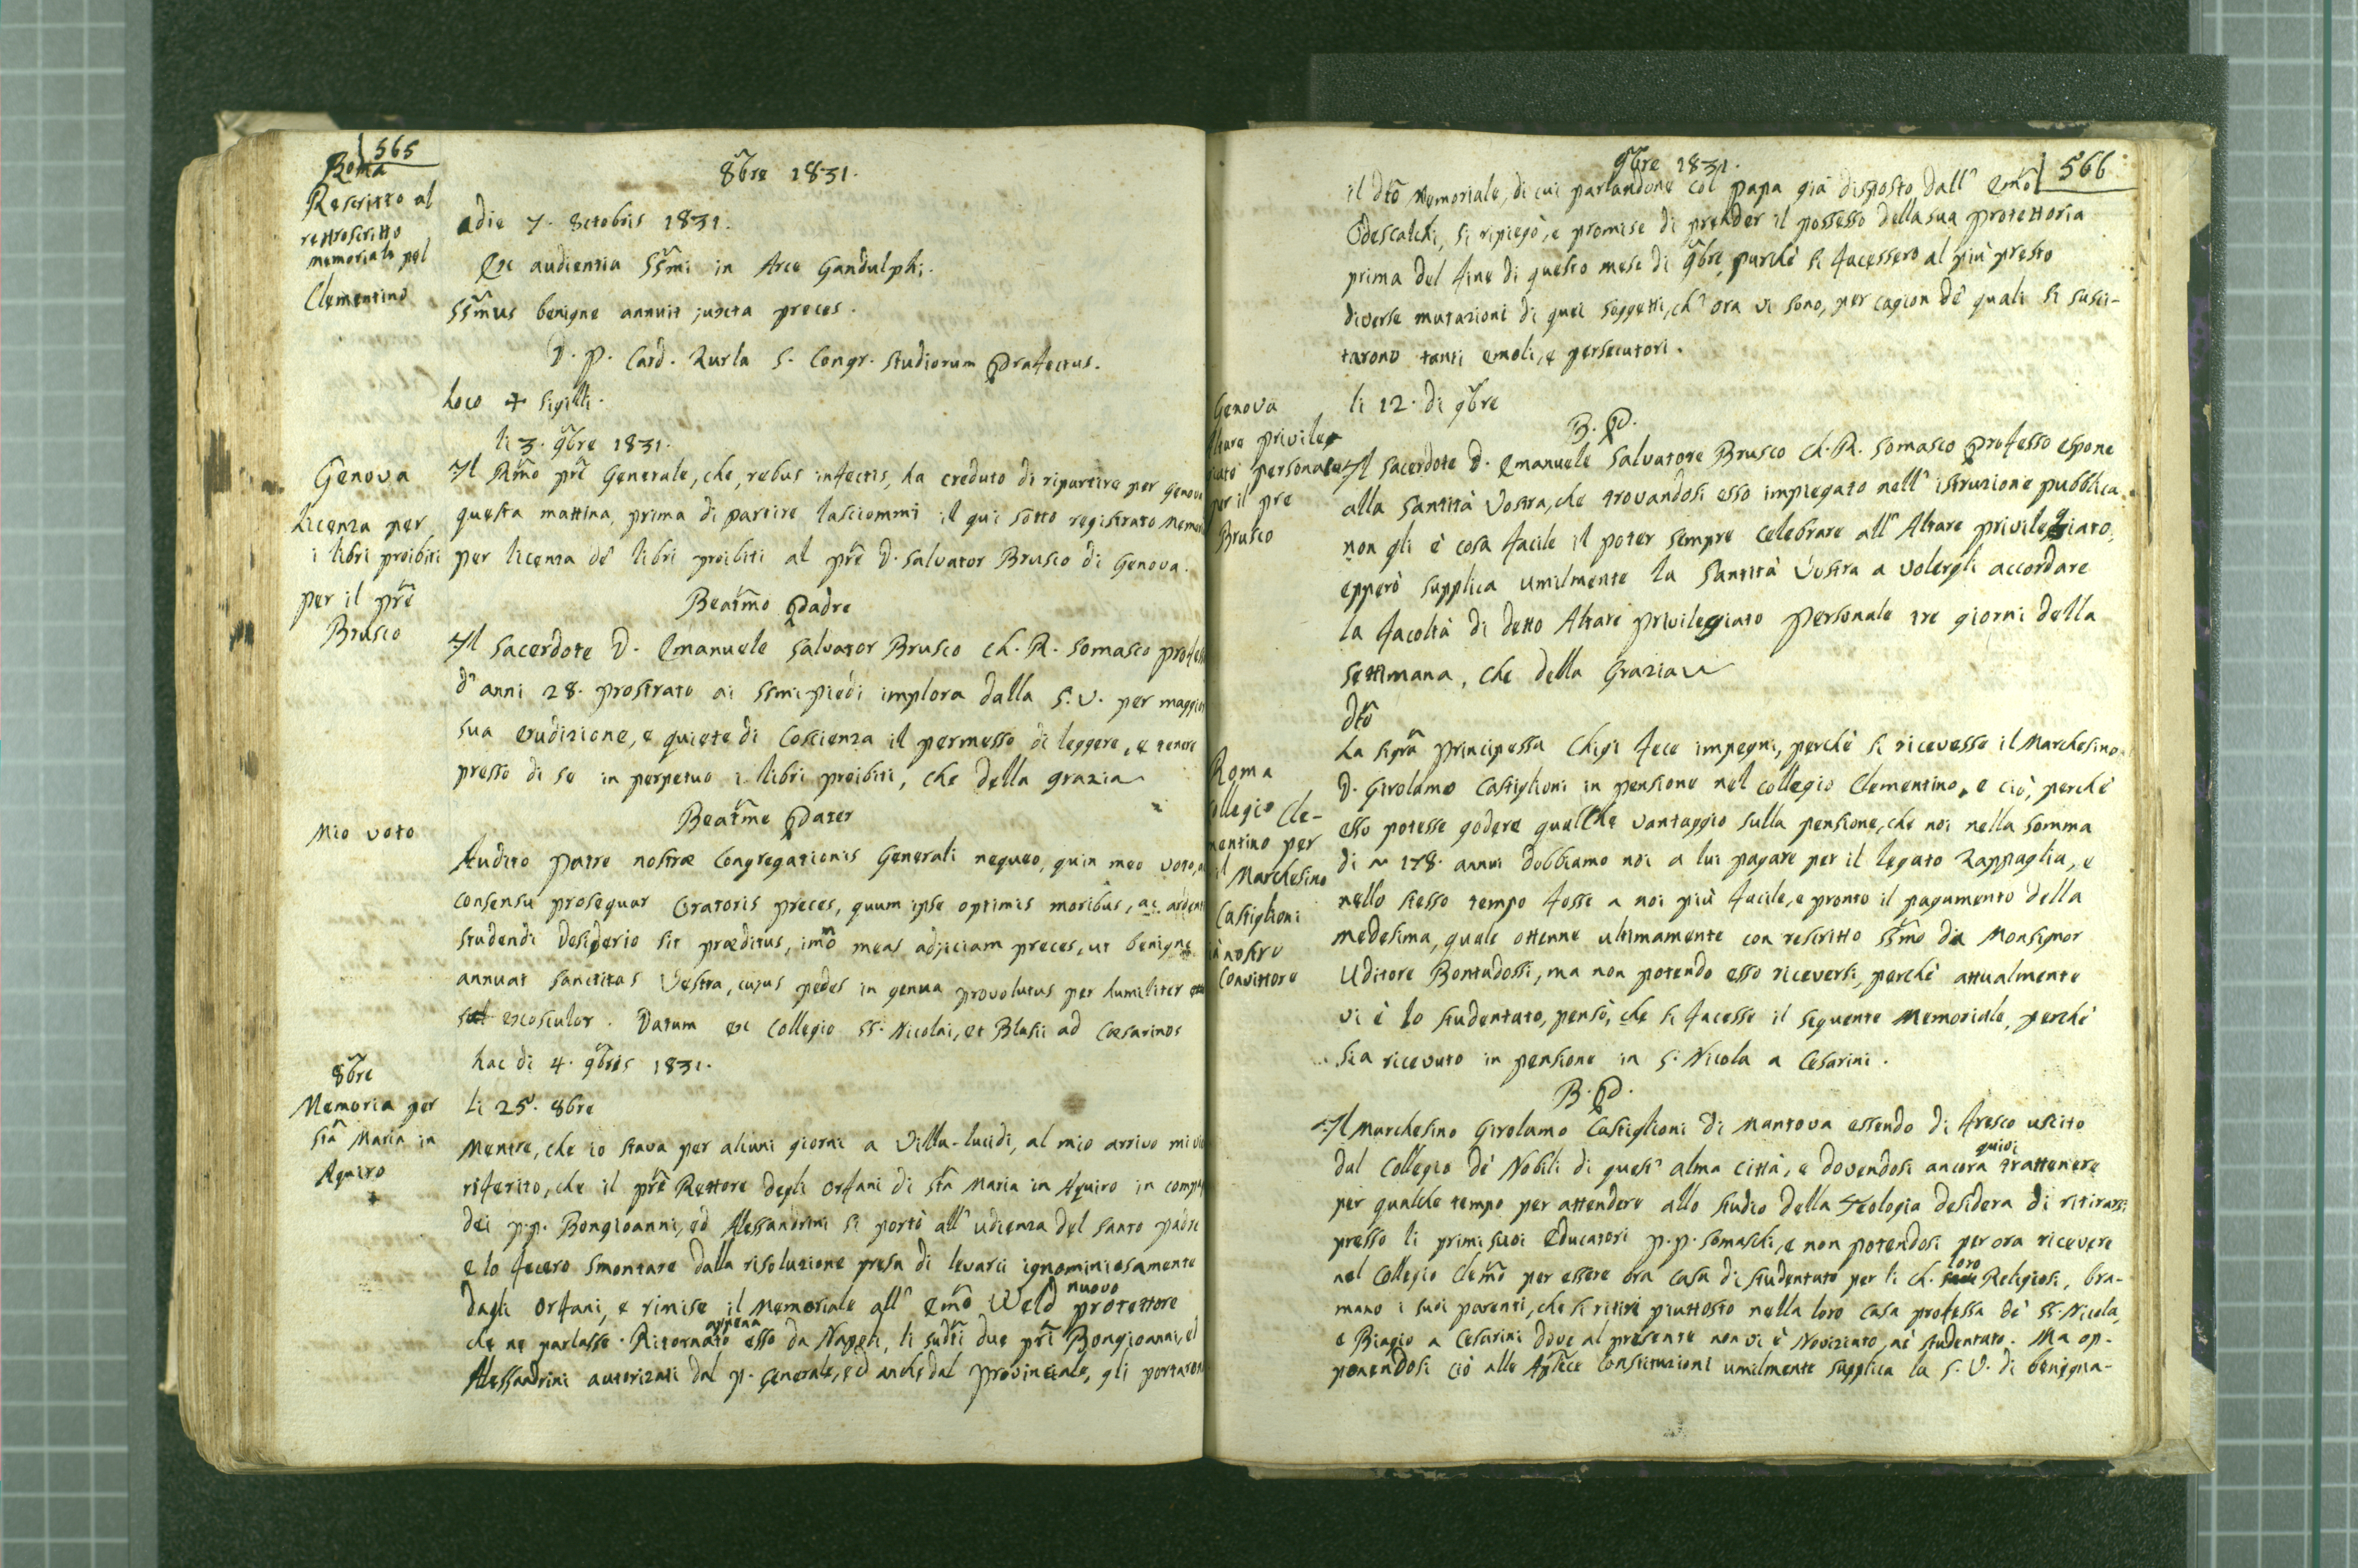 565
8bre 1831.
Roma
Rescritto al
retroscritto
memoriale pel
Clementino
adie 7. 8ctobris 1831.
Ex audientia SSmi in Arce Gandulphi.
SSmus benigne annuit juxta preces.
D. P. Card. Zurla S. Congr. Studiorum Præfectus.
Loco + Sigilli.
li 3. 9bre 1831.
Genova
Licenza per
i libri proibiti
per il pre
Brusco
Il Rmo pre Generale, che, rebus infectis, ha creduto di ripartire per Genova
questa mattina, prima di partire lasciommi il qui sotto registrato
per licenza de' libri proibiti al pre D. Salvator Brusco di Genova.
Beatmo Padre
Il Sacerdote D. Emanuele Salvator Brusco Ch. R. Somasco
d'anni 28. prostrato ai SSmi piedi implora dalla S. V. per
sua erudizione, e quiete di Coscienza il permesso di leggere, e tenere
presso di se in perpetuo i libri proibiti, che della grazia
Beatme Pater
Mio voto
Audito Patre nostræ Congregationis Generali nequeo, quin meo voto,
consensu prosequar Oratoris preces, quum ipse optimis moribus, ac
studendi desiderio sit præditus, imo meas adjiciam preces, ut benigne
annuat Sanctitas Vestra, cujus pedes in genua provolutus per humiliter
exosculor. Datum ex Collegio SS. Nicolai, et Blasii ad Cæsarinos
hac di 4. 9bris 1831.
8bre
Memoria per
Sta Maria in
Aquiro
+
li 25. 8bre
Mentre, che io stava per alcuni giorni a Villa-lucidi, al mio arrivo mi
riferito, che il pre Rettore degli Orfani di Sta Maria in Aquiro in
dei p.p. Bongioanni, ed Alessandrini si portò all' udienza del Santo Padre
e lo fecero smontare dalla risoluzione presa di levarci ignominiosamente
dagli Orfani, e rimise il Memoriale all' Emo Weld nuovo protettore
che ne parlasse. Ritornato appena esso da Napoli, li sudti due pri Bongioanni, ed
Alessandrini autorizati dal p. Generale, ed anche dal Provinciale, gli portarono
566
9bre 1831.
il dto Memoriale, di cui parlandone col Papa già disposto dall' Emo
Odescalchi, si ripiegò, e promise di prender il possesso della sua protettoria
prima del fine di questo mese di 9bre, purchè si facessero al più presto
diverse mutazioni di quei soggetti, ch' ora vi sono, per cagion de' quali si susci-
tarono tanti emoli, e persecutori.
li 12. di 9bre
B. P.
Genova
Altare privile-
giato personale
per il pre
Brusco
Il Sacerdote D. Emanuele Salvatore Brusco Ch. R. Somasco Professo espone
alla Santità Vostra, che trovandosi esso impiegato nell' istruzione pubblica
non gli è cosa facile il poter sempre celebrare all' Altare privilegiato,
epperò supplica umilmente la Santità Vostra a volergli accordare
la facoltà di detto Altare privilegiato personale tre giorni della
Settimana, che della Grazia
dto
Roma
Collegio Cle-
mentino per
il Marchesino
Castiglioni
in nostro
Convittore
La Sigra Principessa Chigi fece impegni, perchè si ricevesse il Marchesino
D. Girolamo Castiglioni in pensione nel collegio Clementino, e ciò, perchè
esso potesse godere qualche vantaggio sulla pensione, che noi nella somma
di 178. annui dobbiamo noi a lui pagare per il legato Zappaglia, e
nello stesso tempo fosse a noi più facile, e pronto il pagamento della
medesima, quale ottenne ultimamente con rescritto SSmo da Monsignor
Uditore Bontadossi, ma non potendo esso riceversi, perchè attualmente
vi è lo studentato, pensò, che si facesse il seguente Memoriale, perchè
sia ricevuto in pensione in S. Nicola a Cesarini.
B. P.
Il Marchesino Girolamo Castiglioni di Mantova essendo di fresco uscito
dal Collegio de' Nobili di quest' alma città, e dovendosi ancora quivi trattenere
per qualche tempo per attendere allo studio della Teologia desidera di ritirarsi
presso li primi suoi Educatori p.p. Somaschi, e non potendosi per ora ricevere
nel Collegio Clemo per essere ora casa di studentato per li Ch. loro Religiosi, bra-
mano i suoi parenti, che si ritiri piuttosto nella loro casa professa de' SS. Nicola,
e Biagio a Cesarini dove al presente non vi è Noviziato, nè studentato. Ma op-
ponendosi ciò alle Aplice Constituzioni umilmente supplica la S. V. di benigna-